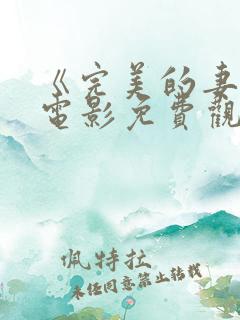 《完美的妻
电影免費觀
佩特拉
未经同意禁止转载